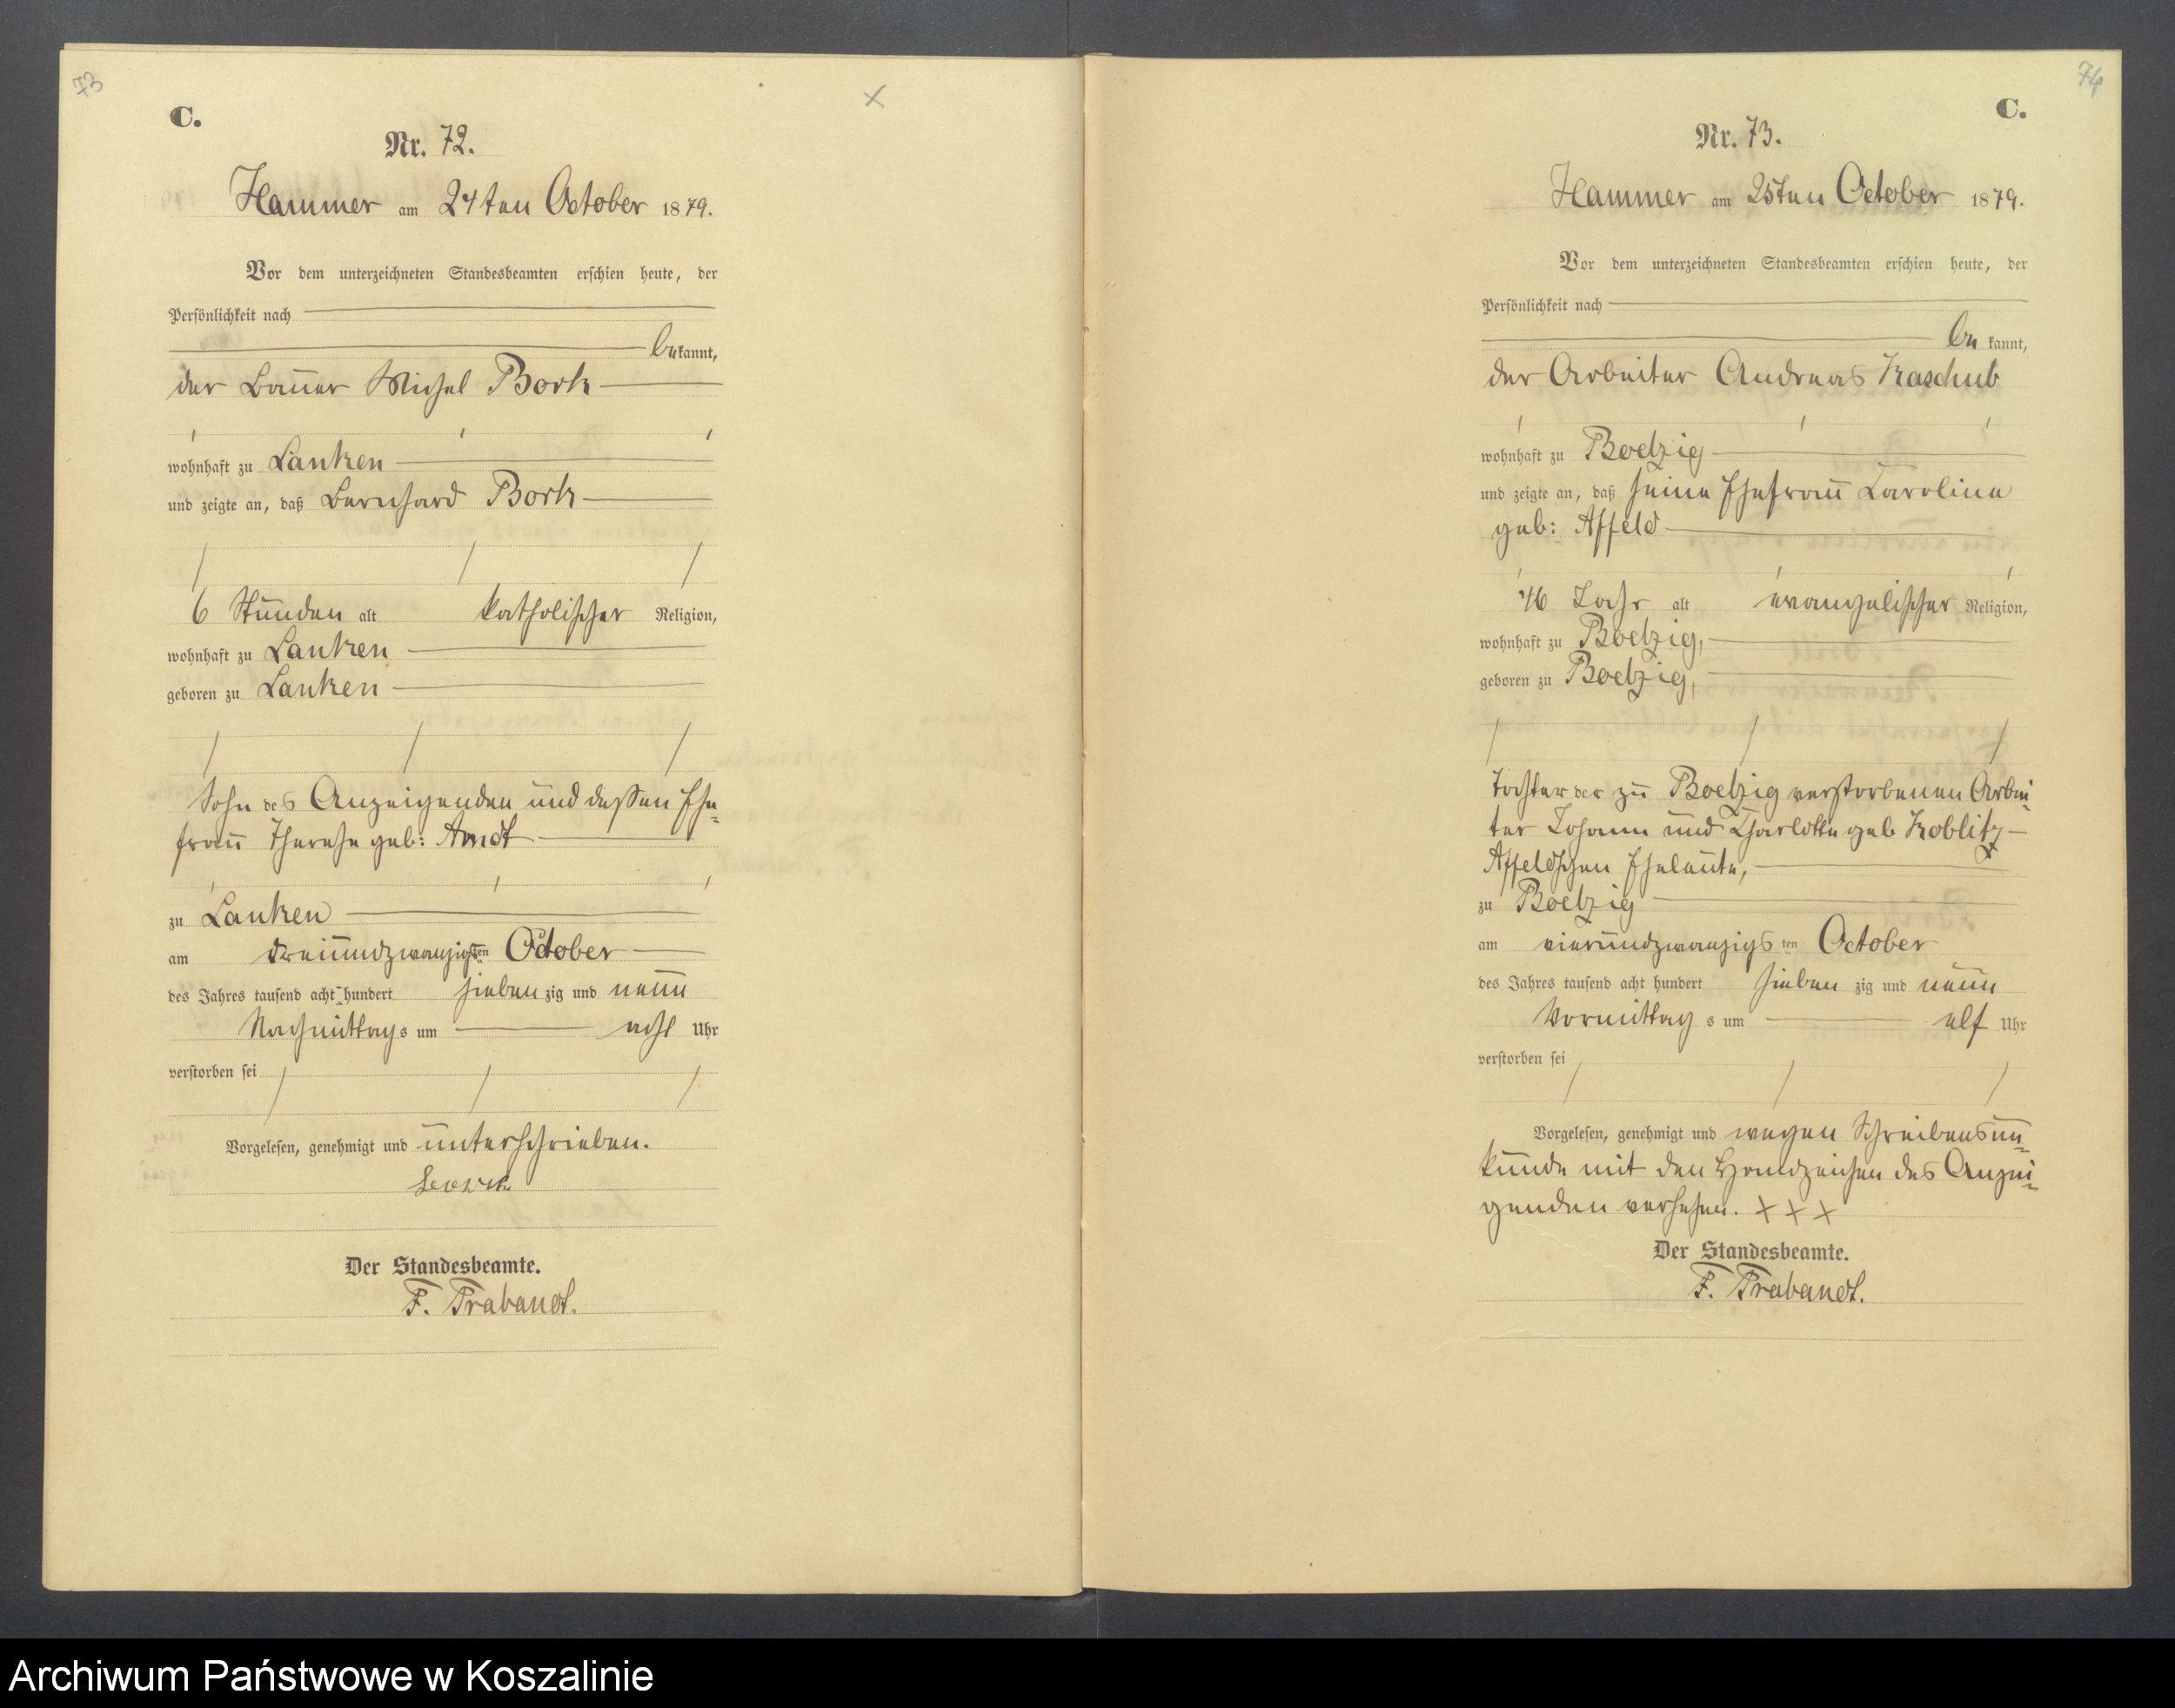 73
C.
Nr. 72.
Hammer am 24ten October 1879.
Vor dem unterzeichneten Standesbeamten erschien heute, der
Persönlichkeit nach
bekannt,
der Bauer Michel Bork
wohnhaft zu Lanken
und zeigte an, daß Bernhard Bork
6 Stunden alt katholischer Religion,
wohnhaft zu Lanken
geboren zu Lanken
Sohn des Anzeigenden und dessen Ehe=
frau Therese geb: Arndt
zu Lanken
am dreiundzwanzigsten October
des Jahres tausend acht hundert siebenzig und neun
Nachmittags um acht Uhr
verstorben sei
Vorgelesen, genehmigt und unterschrieben.
Der Standesbeamte.
F. Trabandt.
74
C.
Nr. 73.
Hammer am 25ten October 1879.
Vor dem unterzeichneten Standesbeamten erschien heute, der
Persönlichkeit nach
bekannt,
der Arbeiter Andreas Kaschub
wohnhaft zu Boetzig
und zeigte an, daß seine Ehefrau Caroline
geb: Affeld
46 Jahr alt evangelischer Religion,
wohnhaft zu Boetzig,
geboren zu Boetzig,
Tochter der zu Boetzig verstorbenen Arbei=
ter Johann und Charlotte geb Koblitz
Affeldschen Eheleute,
zu Boetzig
am vierundzwanzigsten October
des Jahres tausend acht hundert siebenzig und neun
Vormittags um elf Uhr
verstorben sei
Vorgelesen, genehmigt und wegen Schreibensun=
kunde mit den Handzeichen des Anzei=
genden versehen. + + +
Der Standesbeamte.
F. Trabandt.
Archiwum Państwowe w Koszalinie